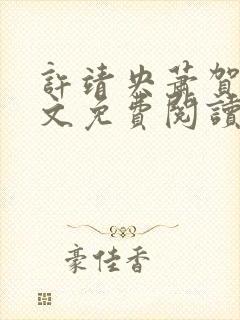 許靖央蕭賀
文免費閱讀
豪佳香